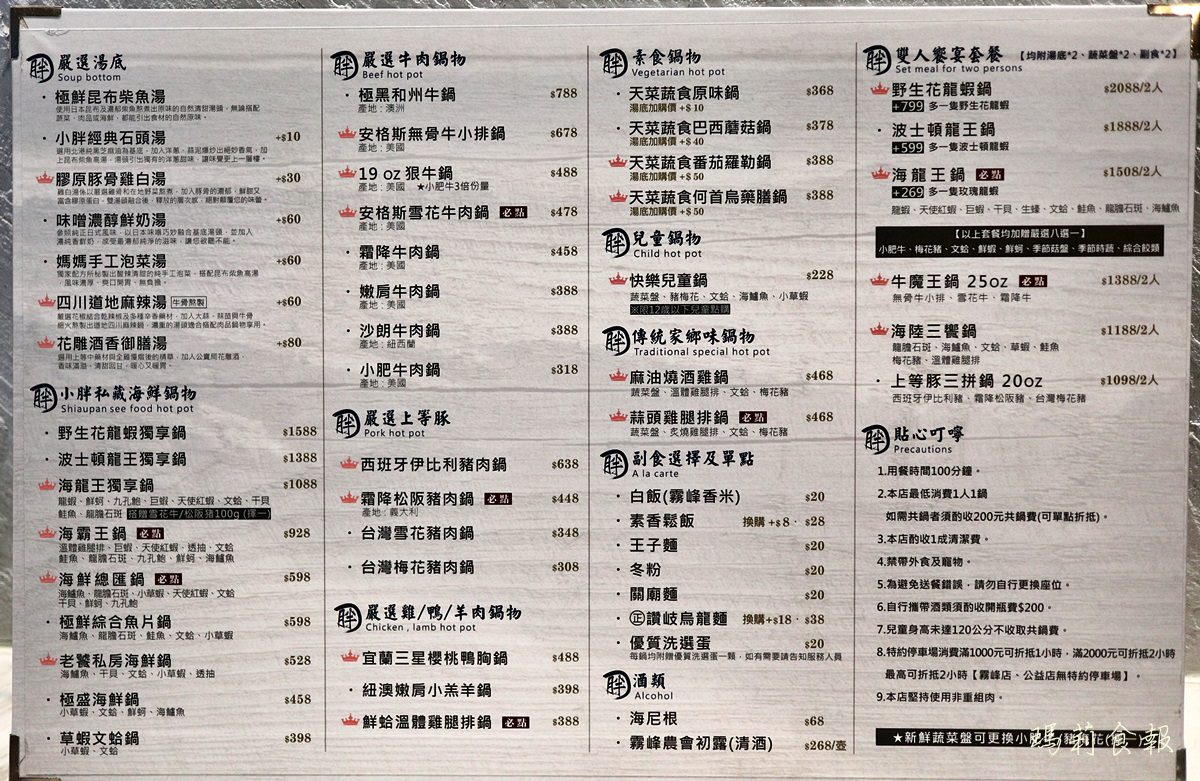 胖 嚴選湯底
Soup bottom
· 極鮮昆布柴魚湯
使用日本昆布及濃郁柴魚熬煮出原味的自然清甜湯頭，無論搭配
蔬菜、肉品或海鮮，都能引出食材的自然原味。
· 小胖經典石頭湯 +$10
選用北港純黑芝麻油為基底，加入洋蔥、蒜泥爆炒出絕妙香氣，加
上昆布柴魚高湯，湯頭引出獨有的洋蔥甜味，讓味覺更上一層樓。
膠原豚骨雞白湯 +$30
雞白湯係以嚴選雞骨和在地野菜熬煮，加入豚骨的濃郁，鮮甜又
富含膠原蛋白，雙湯頭融合後，釋放的層次感，絕對顛覆您的味蕾。
· 味噌濃醇鮮奶湯 +$60
參照純正日式風味，以日本味噌巧妙融合基底湯頭，並加入
濃純香鮮奶，感受最濃郁純淨的滋味，讓您欲罷不能。
· 媽媽手工泡菜湯 +$60
獨家配方所秘製出酸辣清甜的純手工泡菜，搭配昆布柴魚高湯
，風味濃厚，爽口開胃、無負擔。
四川道地麻辣湯 牛骨熬製 +$60
嚴選花椒結合乾辣椒及多種辛香藥材，加入大蒜、辣苗與牛骨
細火熬製出道地四川麻辣鍋，濃重的湯頭適合搭配肉品鍋物享用。
花雕酒香御膳湯 +$80
選用上等中藥材與全雞慢燉後的精華，加入公賣局花雕酒
香味滿溢，清甜回甘，暖心又暖胃。
胖 小胖私藏海鮮鍋物
Shiaupan see food hot pot
· 野生花龍蝦獨享鍋 $1588
· 波士頓龍王獨享鍋 $1388
海龍王獨享鍋 $1088
龍蝦、鮮蚵、九孔鮑、巨蝦、天使紅蝦、文蛤、干貝
鮭魚、龍膽石斑 搭贈雪花牛/松阪豬100g (擇一)
海霸王鍋 必點 $928
溫體雞腿排、巨蝦、天使紅蝦、透抽、文蛤
鮭魚、龍膽石斑、九孔鮑、鮮蚵、海鱸魚
海鮮總匯鍋 必點 $598
海鱸魚、龍膽石斑、小草蝦、天使紅蝦、文蛤
干貝、鮮蚵、九孔鮑
· 極鮮綜合魚片鍋 $598
海鱸魚、龍膽石斑、鮭魚、文蛤、小草蝦
老饕私房海鮮鍋 $528
海鱸魚、干貝、文蛤、小草蝦、透抽
· 極盛海鮮鍋 $458
小草蝦、文蛤、鮮蚵、海鱸魚
· 草蝦文蛤鍋 $398
小草蝦、文蛤
胖 嚴選牛肉鍋物
Beef hot pot
· 極黑和州牛鍋 $788
產地：澳洲
安格斯無骨牛小排鍋 $678
產地：美國
19 oz 狠牛鍋 $488
產地：美國 ★小肥牛3倍份量
安格斯雪花牛肉鍋 必點 $478
產地：美國
· 霜降牛肉鍋 $458
產地：美國
· 嫩肩牛肉鍋 $388
產地：美國
· 沙朗牛肉鍋 $388
產地：紐西蘭
· 小肥牛肉鍋 $318
產地：美國
胖 嚴選上等豚
Pork hot pot
西班牙伊比利豬肉鍋 $638
霜降松阪豬肉鍋 必點 $448
產地：義大利
· 台灣雪花豬肉鍋 $348
· 台灣梅花豬肉鍋 $308
胖 嚴選雞/鴨/羊肉鍋物
Chicken , lamb hot pot
宜蘭三星櫻桃鴨胸鍋 $488
· 紐澳嫩肩小羔羊鍋 $398
鮮蛤溫體雞腿排鍋 必點 $388
胖 素食鍋物
Vegetarian hot pot
· 天菜蔬食原味鍋 $368
湯底加購價 +$10
· 天菜蔬食巴西蘑菇鍋 $378
湯底加購價 +$40
天菜蔬食番茄羅勒鍋 $388
湯底加購價 +$50
天菜蔬食何首烏藥膳鍋 $388
湯底加購價 +$50
胖 兒童鍋物
Child hot pot
快樂兒童鍋 $228
蔬菜盤、豬梅花、文蛤、海鱸魚、小草蝦
※限12歲以下兒童點購
胖 傳統家鄉味鍋物
Traditional special hot pot
麻油燒酒雞鍋 $468
蔬菜盤、溫體雞腿排、文蛤、梅花豬
蒜頭雞腿排鍋 必點 $468
蔬菜盤、炙燒雞腿排、文蛤、梅花豬
胖 副食選擇及單點
A la carte
· 白飯(霧峰香米) $20
· 素香鬆飯 換購 +$8 · $28
· 王子麵 $20
· 冬粉 $20
· 關廟麵 $20
· ㊣讚岐烏龍麵 換購+$18 · $38
· 優質洗選蛋 $20
每鍋均附贈優質洗選蛋一顆，如有需要請告知服務人員
胖 酒類
Alcohol
· 海尼根 $68
· 霧峰農會初露(清酒) $268/壺
胖 雙人饗宴套餐 【均附湯底*2、蔬菜盤*2、副食*2】
Set meal for two persons
野生花龍蝦鍋 $2088/2人
+799 多一隻野生花龍蝦
· 波士頓龍王鍋 $1888/2人
+599 多一隻波士頓龍蝦
海龍王鍋 必點 $1508/2人
+269 多一隻玫瑰龍蝦
龍蝦、天使紅蝦、巨蝦、干貝、生蠔、文蛤、鮭魚、龍膽石斑、海鱸魚
【以上套餐均加贈嚴選八選一】
小肥牛、梅花豬、文蛤、鮮蝦、鮮蚵、季節菇盤、季節時蔬、綜合餃類
牛魔王鍋 25oz 必點 $1388/2人
無骨牛小排、雪花牛、霜降牛
海陸三饗鍋 $1188/2人
龍膽石斑、海鱸魚、文蛤、草蝦、鮭魚
梅花豬、溫體雞腿排
· 上等豚三拼鍋 20oz $1098/2人
西班牙伊比利豬、霜降松阪豬、台灣梅花豬
胖 貼心叮嚀
Precautions
1.用餐時間100分鐘。
2.本店最低消費1人1鍋
如需共鍋者須酌收200元共鍋費(可單點折抵)。
3.本店酌收1成清潔費。
4.禁帶外食及寵物。
5.為避免送餐錯誤，請勿自行更換座位。
6.自行攜帶酒類須酌收開瓶費$200。
7.兒童身高未達120公分不收取共鍋費。
8.特約停車場消費滿1000元可折抵1小時，滿2000元可折抵2小時
最高可折抵2小時【霧峰店、公益店無特約停車場】。
9.本店堅持使用非重組肉。
★新鮮蔬菜盤可更換小
瑪莉食報